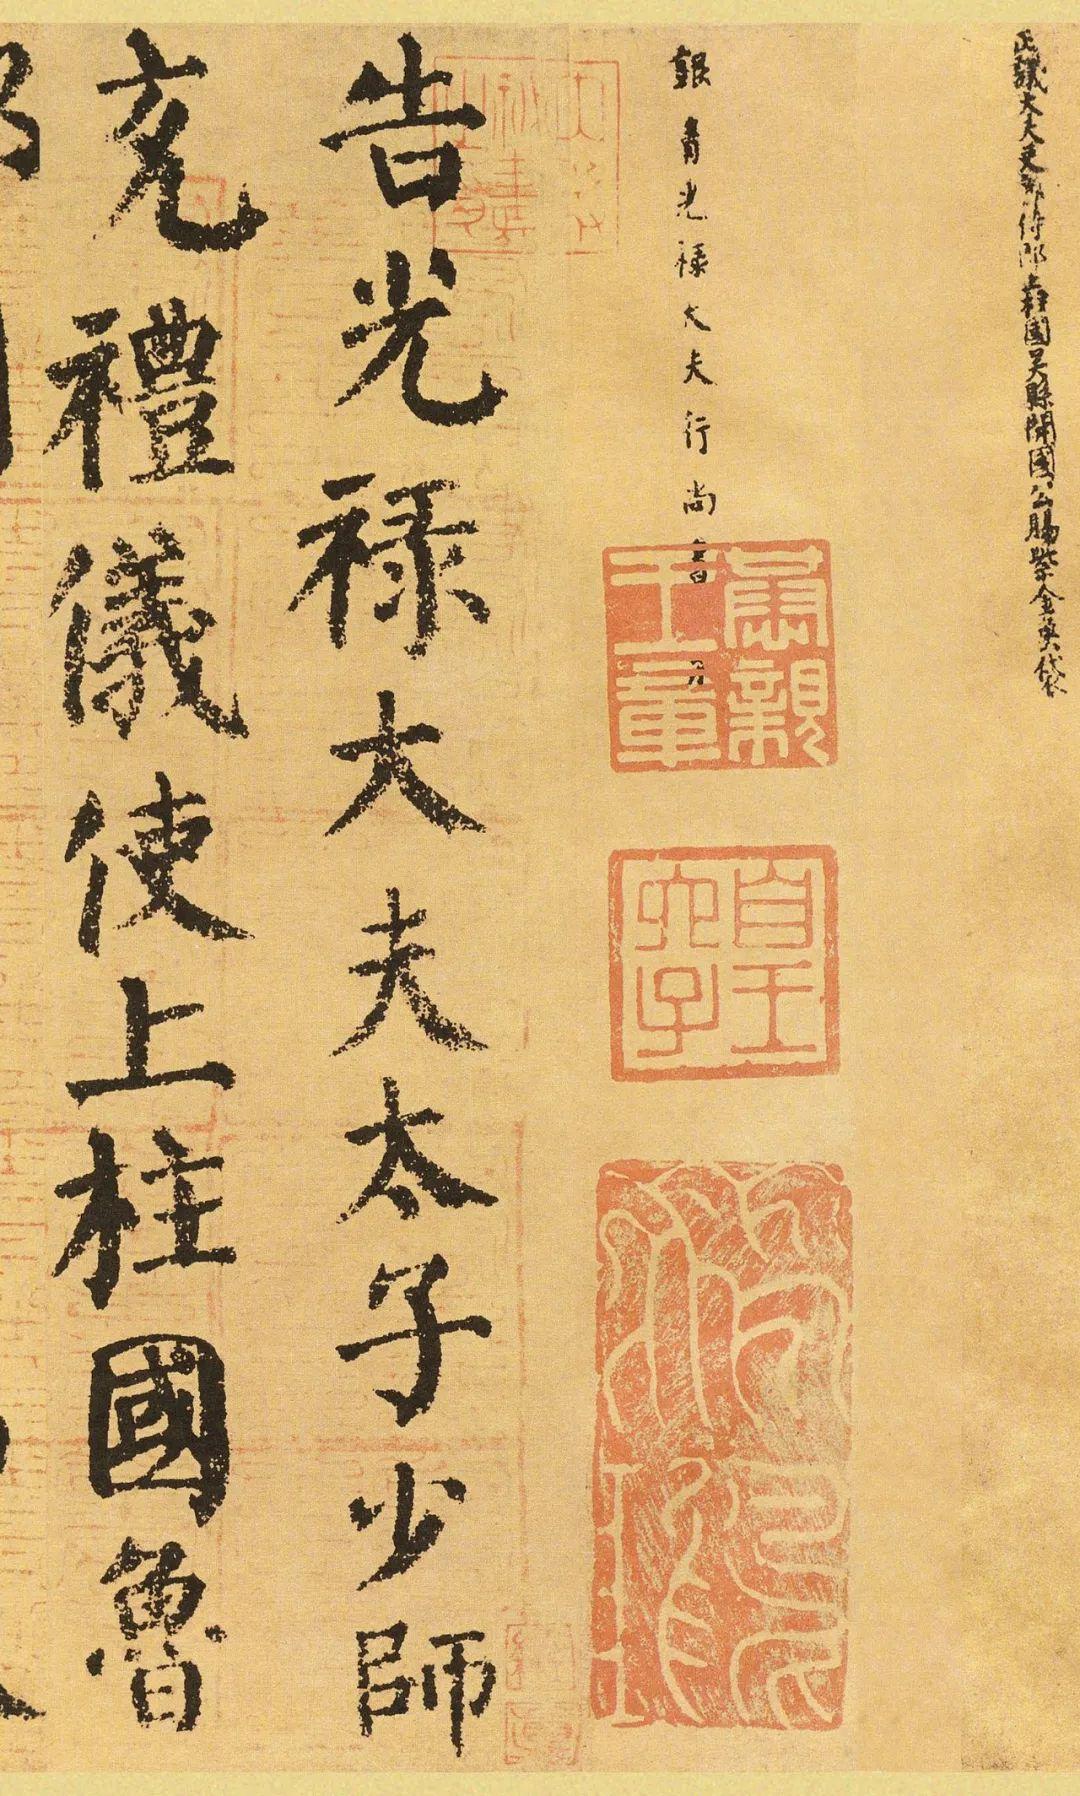 正議大夫吏部侍郎上柱國吳縣開國公賜紫金魚袋
銀青光祿大夫行尚書
肅親王章
告光祿大夫太子少師
充禮儀使上柱國魯